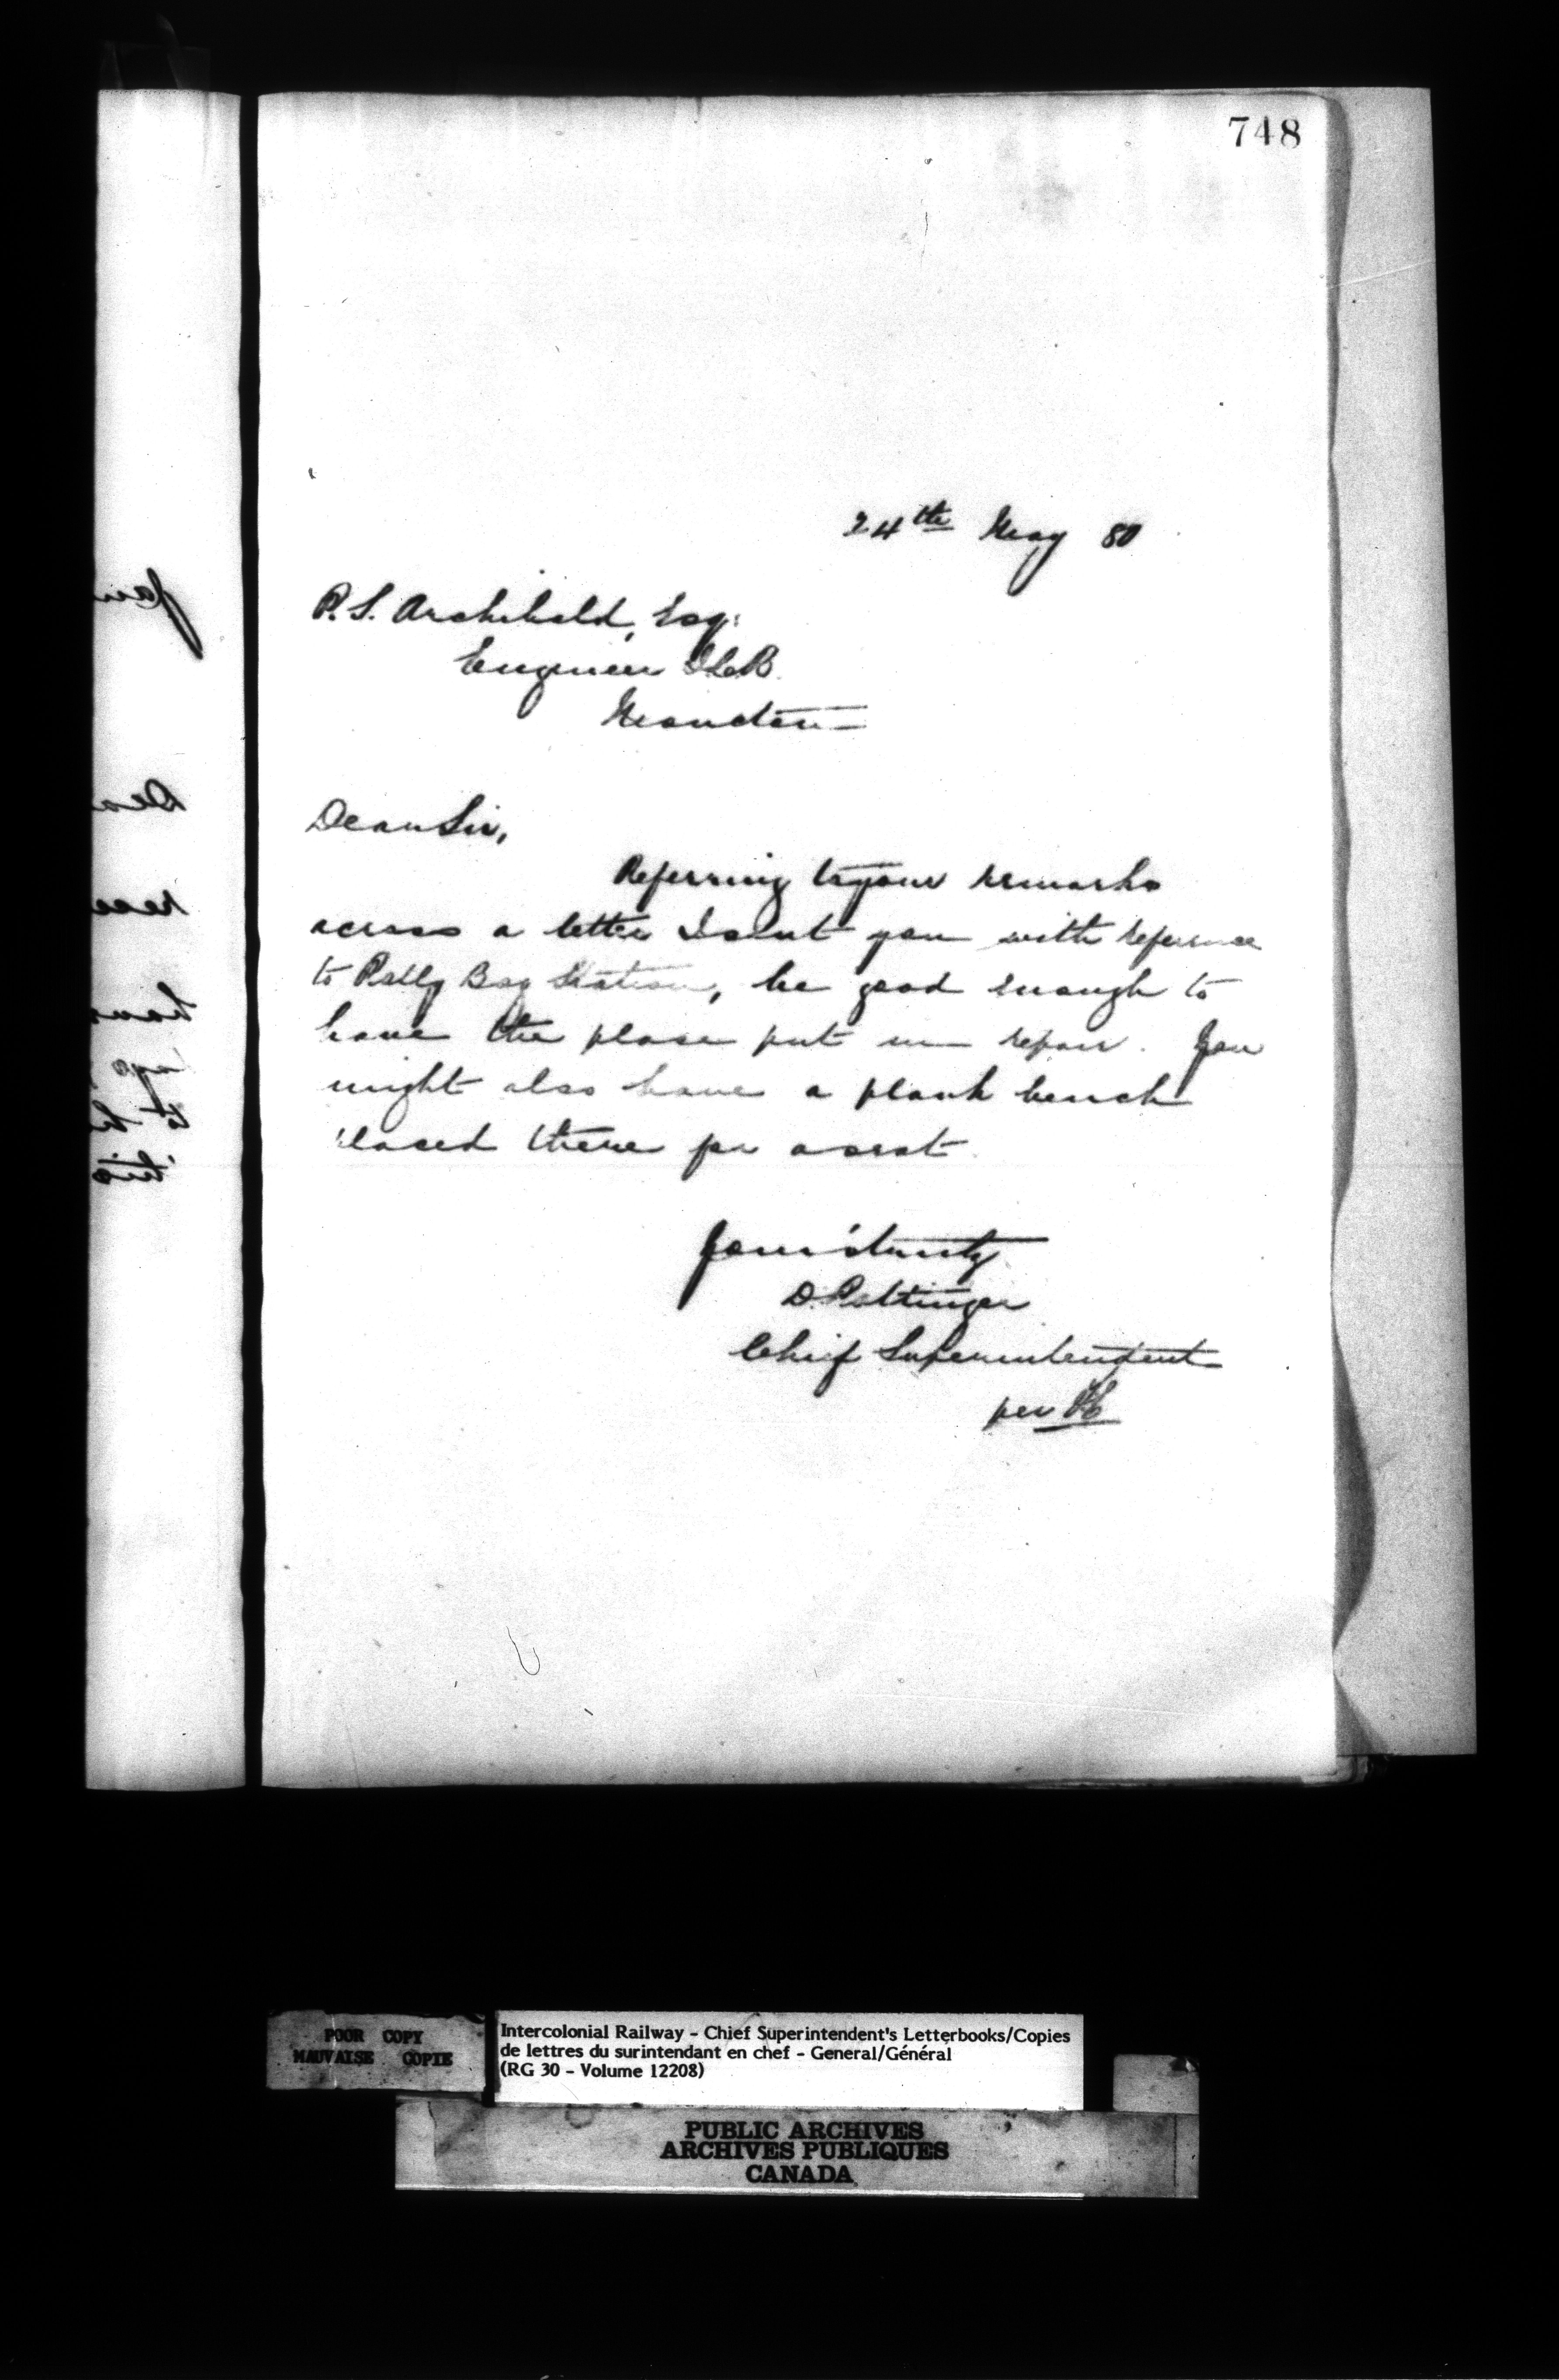 748
24th May 80
P. S. Archibald, Esq:
Engineer I.C.R.
Moncton
Dear Sir,
Referring to your remarks
across a letter I sent you with reference
to Station, be good enough to
have the place put in repair. You
might also have a plank bench
placed there for a seat
Yours truly
D. Pottinger
Chief Superintendent
per
POOR COPY
MAUVAISE COPIE
Intercolonial Railway - Chief Superintendent's Letterbooks/Copies
de lettres du surintendant en chef - General/Général
(RG 30 - Volume 12208)
PUBLIC ARCHIVES
ARCHIVES PUBLIQUES
CANADA